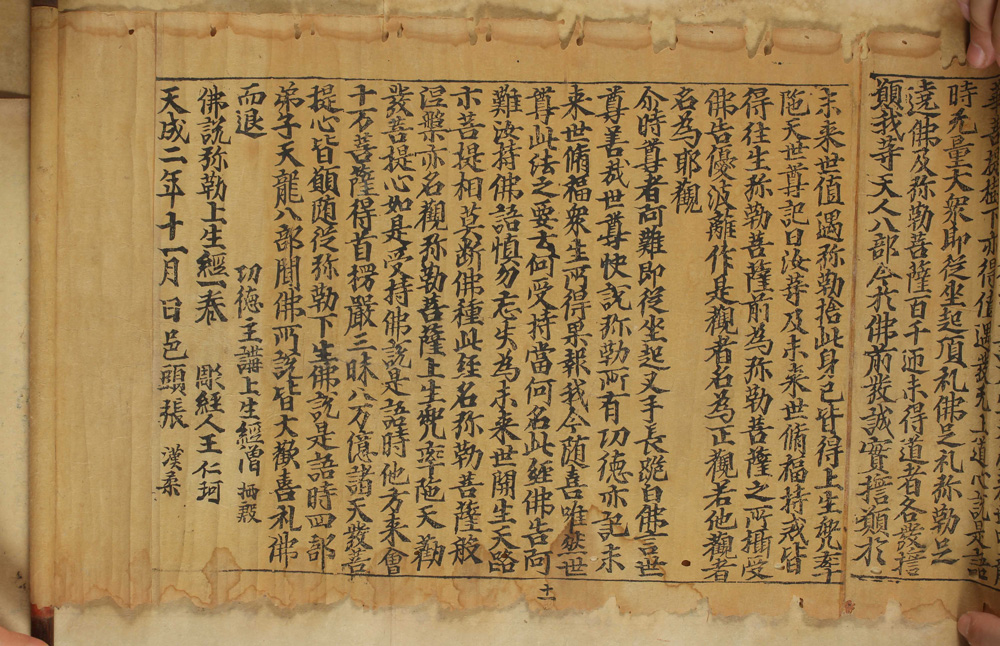 菩提樹下亦得值遇發无上道心說是語
時无量大衆即從坐起頂礼佛足礼弥勒足
遶佛及弥勒菩薩百千迊未得道者各發擔
願我等天人八部今於佛前發誠實擔願於
未来世值遇弥勒捨此身已皆得上生兜率
陁天世尊記曰汝等及未来世脩福持戒皆
得往生弥勒菩薩前為弥勒菩薩之所攝受
佛告優波離作是觀者名為正觀若他觀者
名為耶觀
尒時尊者阿難即從坐起叉手長跪白佛言世
尊善哉世尊快說弥勒所有功徳亦記未
来世脩福衆生所得果報我今随喜唯然世
尊此法之要云何受持當何名此經佛告阿
難汝持佛語慎勿忘失為未来世開生天路
示菩提相莫断佛種此経名弥勒菩薩般
涅槃亦名觀弥勒菩薩上生兜率陁天勸
發菩提心如是受持佛說是語時他方来會
十万菩薩得首楞嚴三昧八万億諸天發菩
提心皆願随從弥勒下生佛說是語時四部
弟子天龍八部聞佛所說皆大歡喜礼佛
而退 功徳主講上生經僧 栖殷
佛說弥勒上生經一卷 彫經人王仁珂
天成二年十一月 日邑頭張 漢柔
十一